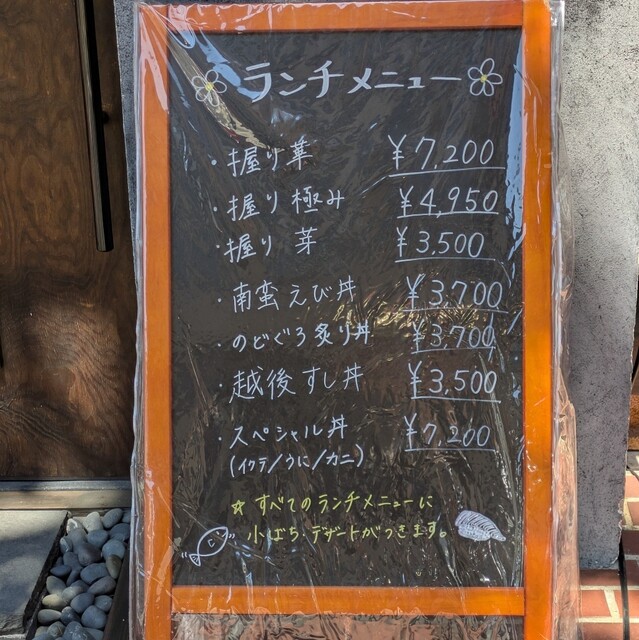 ランチメニュー
・握り華 ¥7,200
・握り極み ¥4,950
・握り 芽 ¥3,500
・南蛮えび丼 ¥3,700
・のどぐろ炙り丼 ¥3,700
・越後すし丼 ¥3,500
・スペシャル丼 ¥7,200
(イクラ/うに/カニ)
☆すべてのランチメニューに
小ばち デザートがつきます。